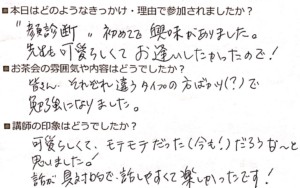 ■本日はどのようなきっかけ・理由で参加されましたか？
"顔診断" 初めてで興味がありました。
先生も可愛らしくてお逢いしたかったので！
■お茶会の雰囲気や内容はどうでしたか？
皆さん、それぞれ違うタイプの方ばかり(？)で
勉強になりました。
■講師の印象はどうでしたか？
可愛らしくて、モテモテだった(今も！)だろうな〜と
思いました。！
話が具体的で、話しやすくて楽しかったです！